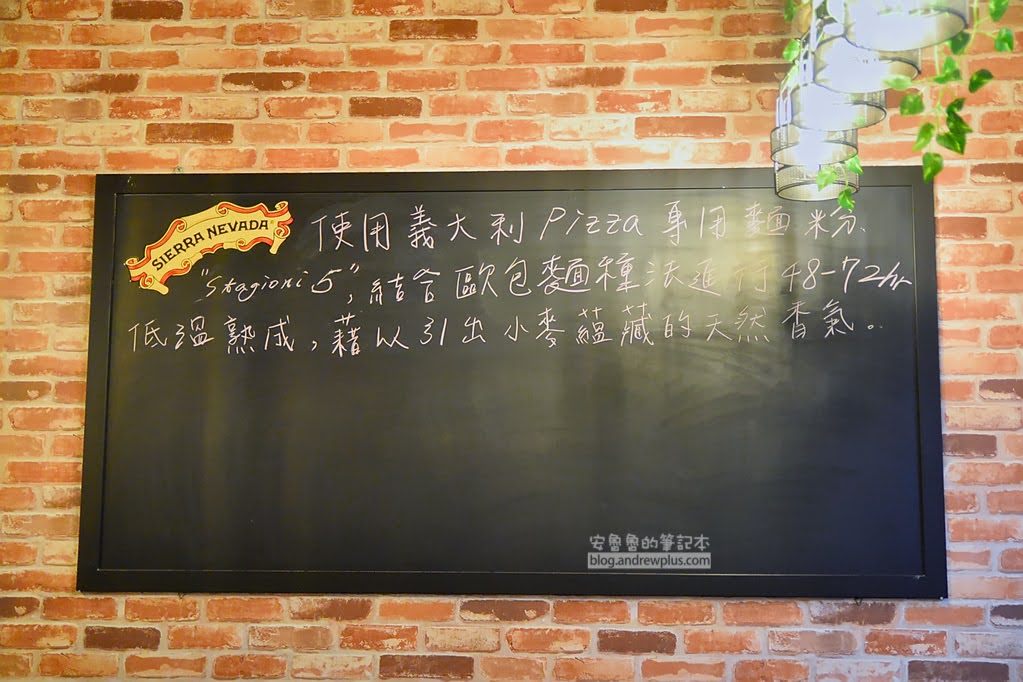 SIERRA NEVADA
使用義大利Pizza專用麵粉、
"Stagioni 5"，結合歐包麵種法進行48-72hr
低溫熟成，藉以引出小麥蘊藏的天然香氣。
安魯魯的筆記本
blog.andrewplus.com